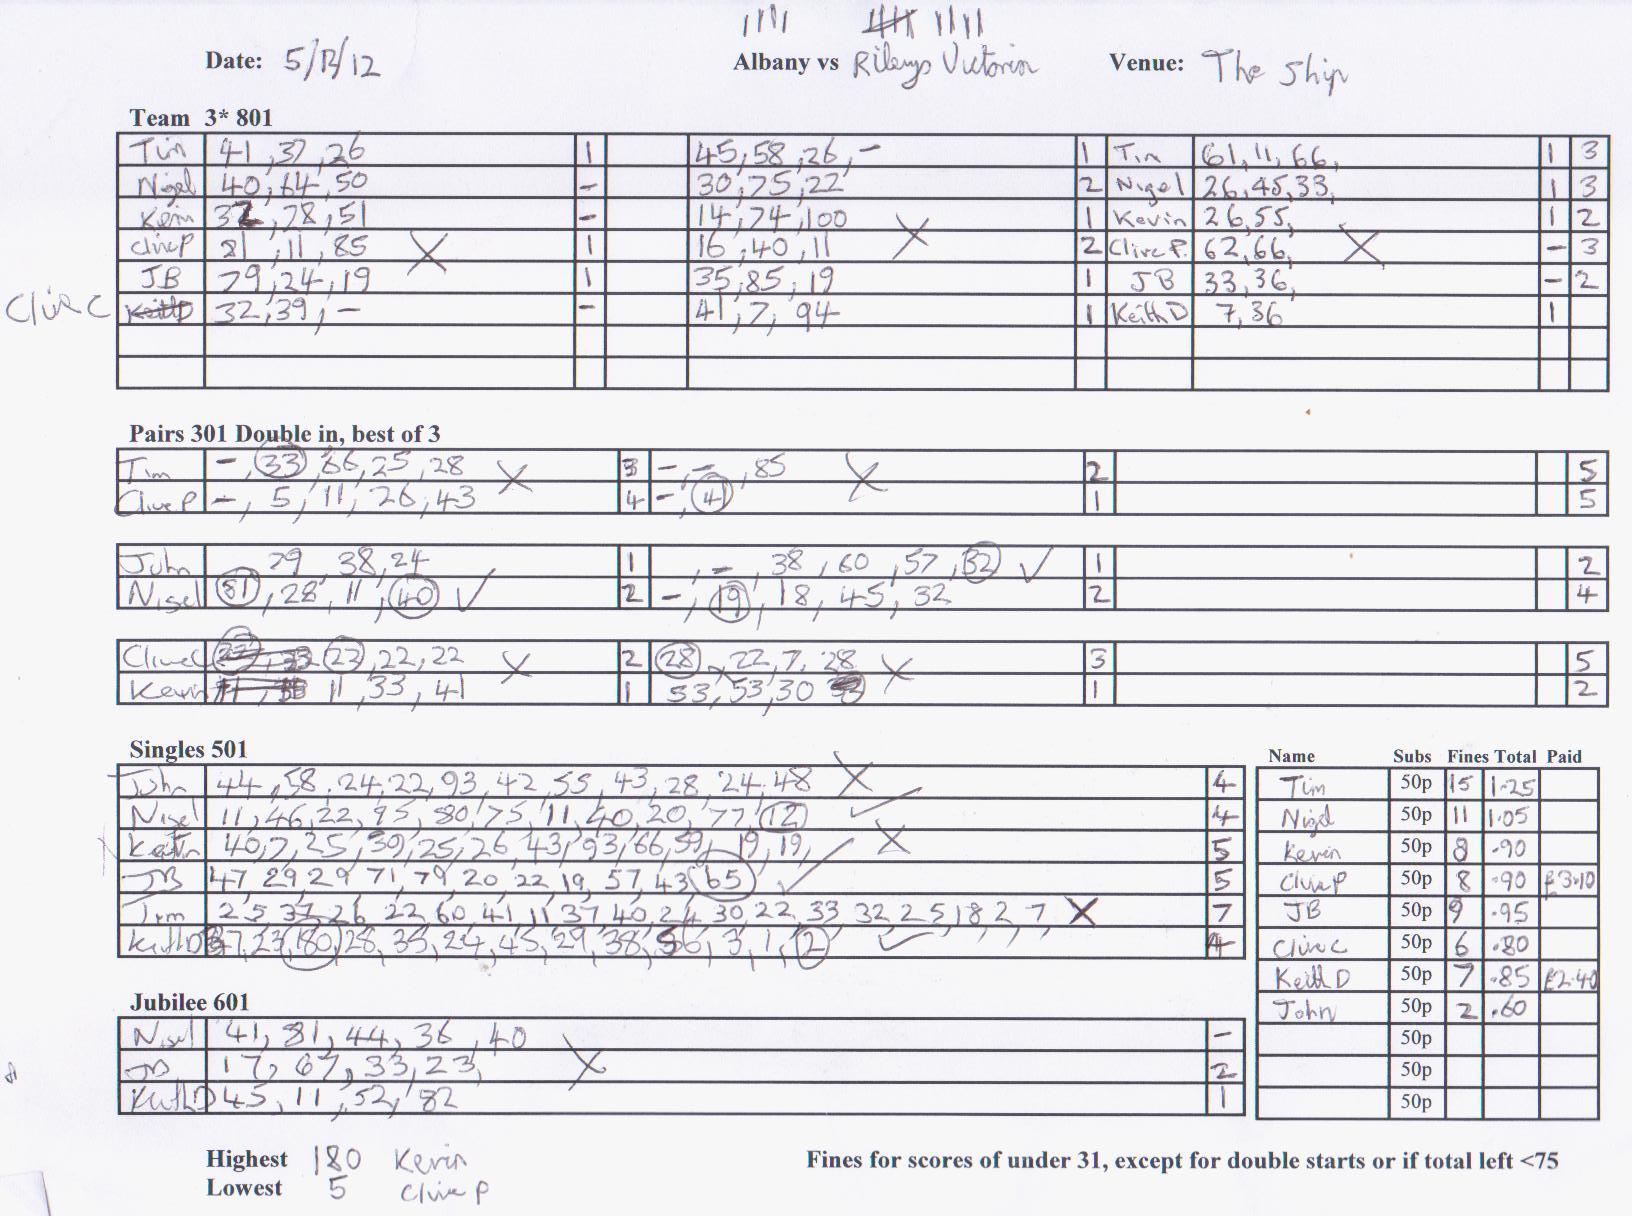 Date: 5/12/12 Albany vs Rileys Victoria Venue: The Ship
Team 3* 801
Tim 41, 37, 26 1 45, 58, 26, - 1 Tim 61, 11, 66, 1 3
Nigel 40, 64, 50 - 30, 75, 22 2 Nigel 26, 45, 33, 1 3
Kevin 32, 78, 51 - 14, 74, 100 1 Kevin 26, 55, 1 2
Clive P 81, 11, 85 X 1 16, 40, 11 X 2 Clive P. 62, 66, X - 3
JB 79, 24, 19 1 35, 85, 19 1 JB 33, 36, - 2
Clive C 32, 39, - - 41, 7, 94 1 Keith D 7, 36 1
Pairs 301 Double in, best of 3
Tim -, 33, 66, 25, 28 X 3 -, -, 85 X 2 5
Clive P -, 5, 11, 26, 43 4 -, 41 1 5
John 79, 38, 24 1 , -, 38, 60, 57, 32 ✓ 1 2
Nigel 81, 28, 11, 40 ✓ 2 -, 19, 18, 45, 32 2 4
Clive C 23, 22, 22 X 2 28, 22, 7, 28 X 3 5
Kevin 11, 33, 41 1 53, 53, 30 1 2
Singles 501
John 44, 58, 24, 22, 93, 42, 55, 43, 28, 24, 48 X 4
Nigel 11, 46, 22, 95, 80, 75, 11, 40, 20, 77, 12 ✓ 4
40, 7, 25, 39, 25, 26, 43, 93, 66, 59, 19, 19, X 5
JB 47, 29, 29, 71, 79, 20, 22, 19, 57, 43, 65 ✓ 5
Tim 25, 37, 26, 22, 60, 41, 11, 37, 40, 24, 30, 22, 33, 32, 25, 18, 2, 7, X 7
Keith D 47, 23, 180, 28, 33, 24, 45, 29, 38, 56, 3, 1, 2 ✓ 4
Name Subs Fines Total Paid
Tim 50p 15 1.25
Nigel 50p 11 1.05
Kevin 50p 8 .90
Clive P 50p 8 .90 £3.10
JB 50p 9 .95
Clive C 50p 6 .80
Keith D 50p 7 .85 £2.40
John 50p 2 .60
50p
50p
50p
Jubilee 601
Nigel 41, 81, 44, 36, 40 -
JB 17, 67, 33, 23, X 2
Keith D 45, 11, 52, 82 1
Highest 180 Kevin
Lowest 5 Clive P
Fines for scores of under 31, except for double starts or if total left <75